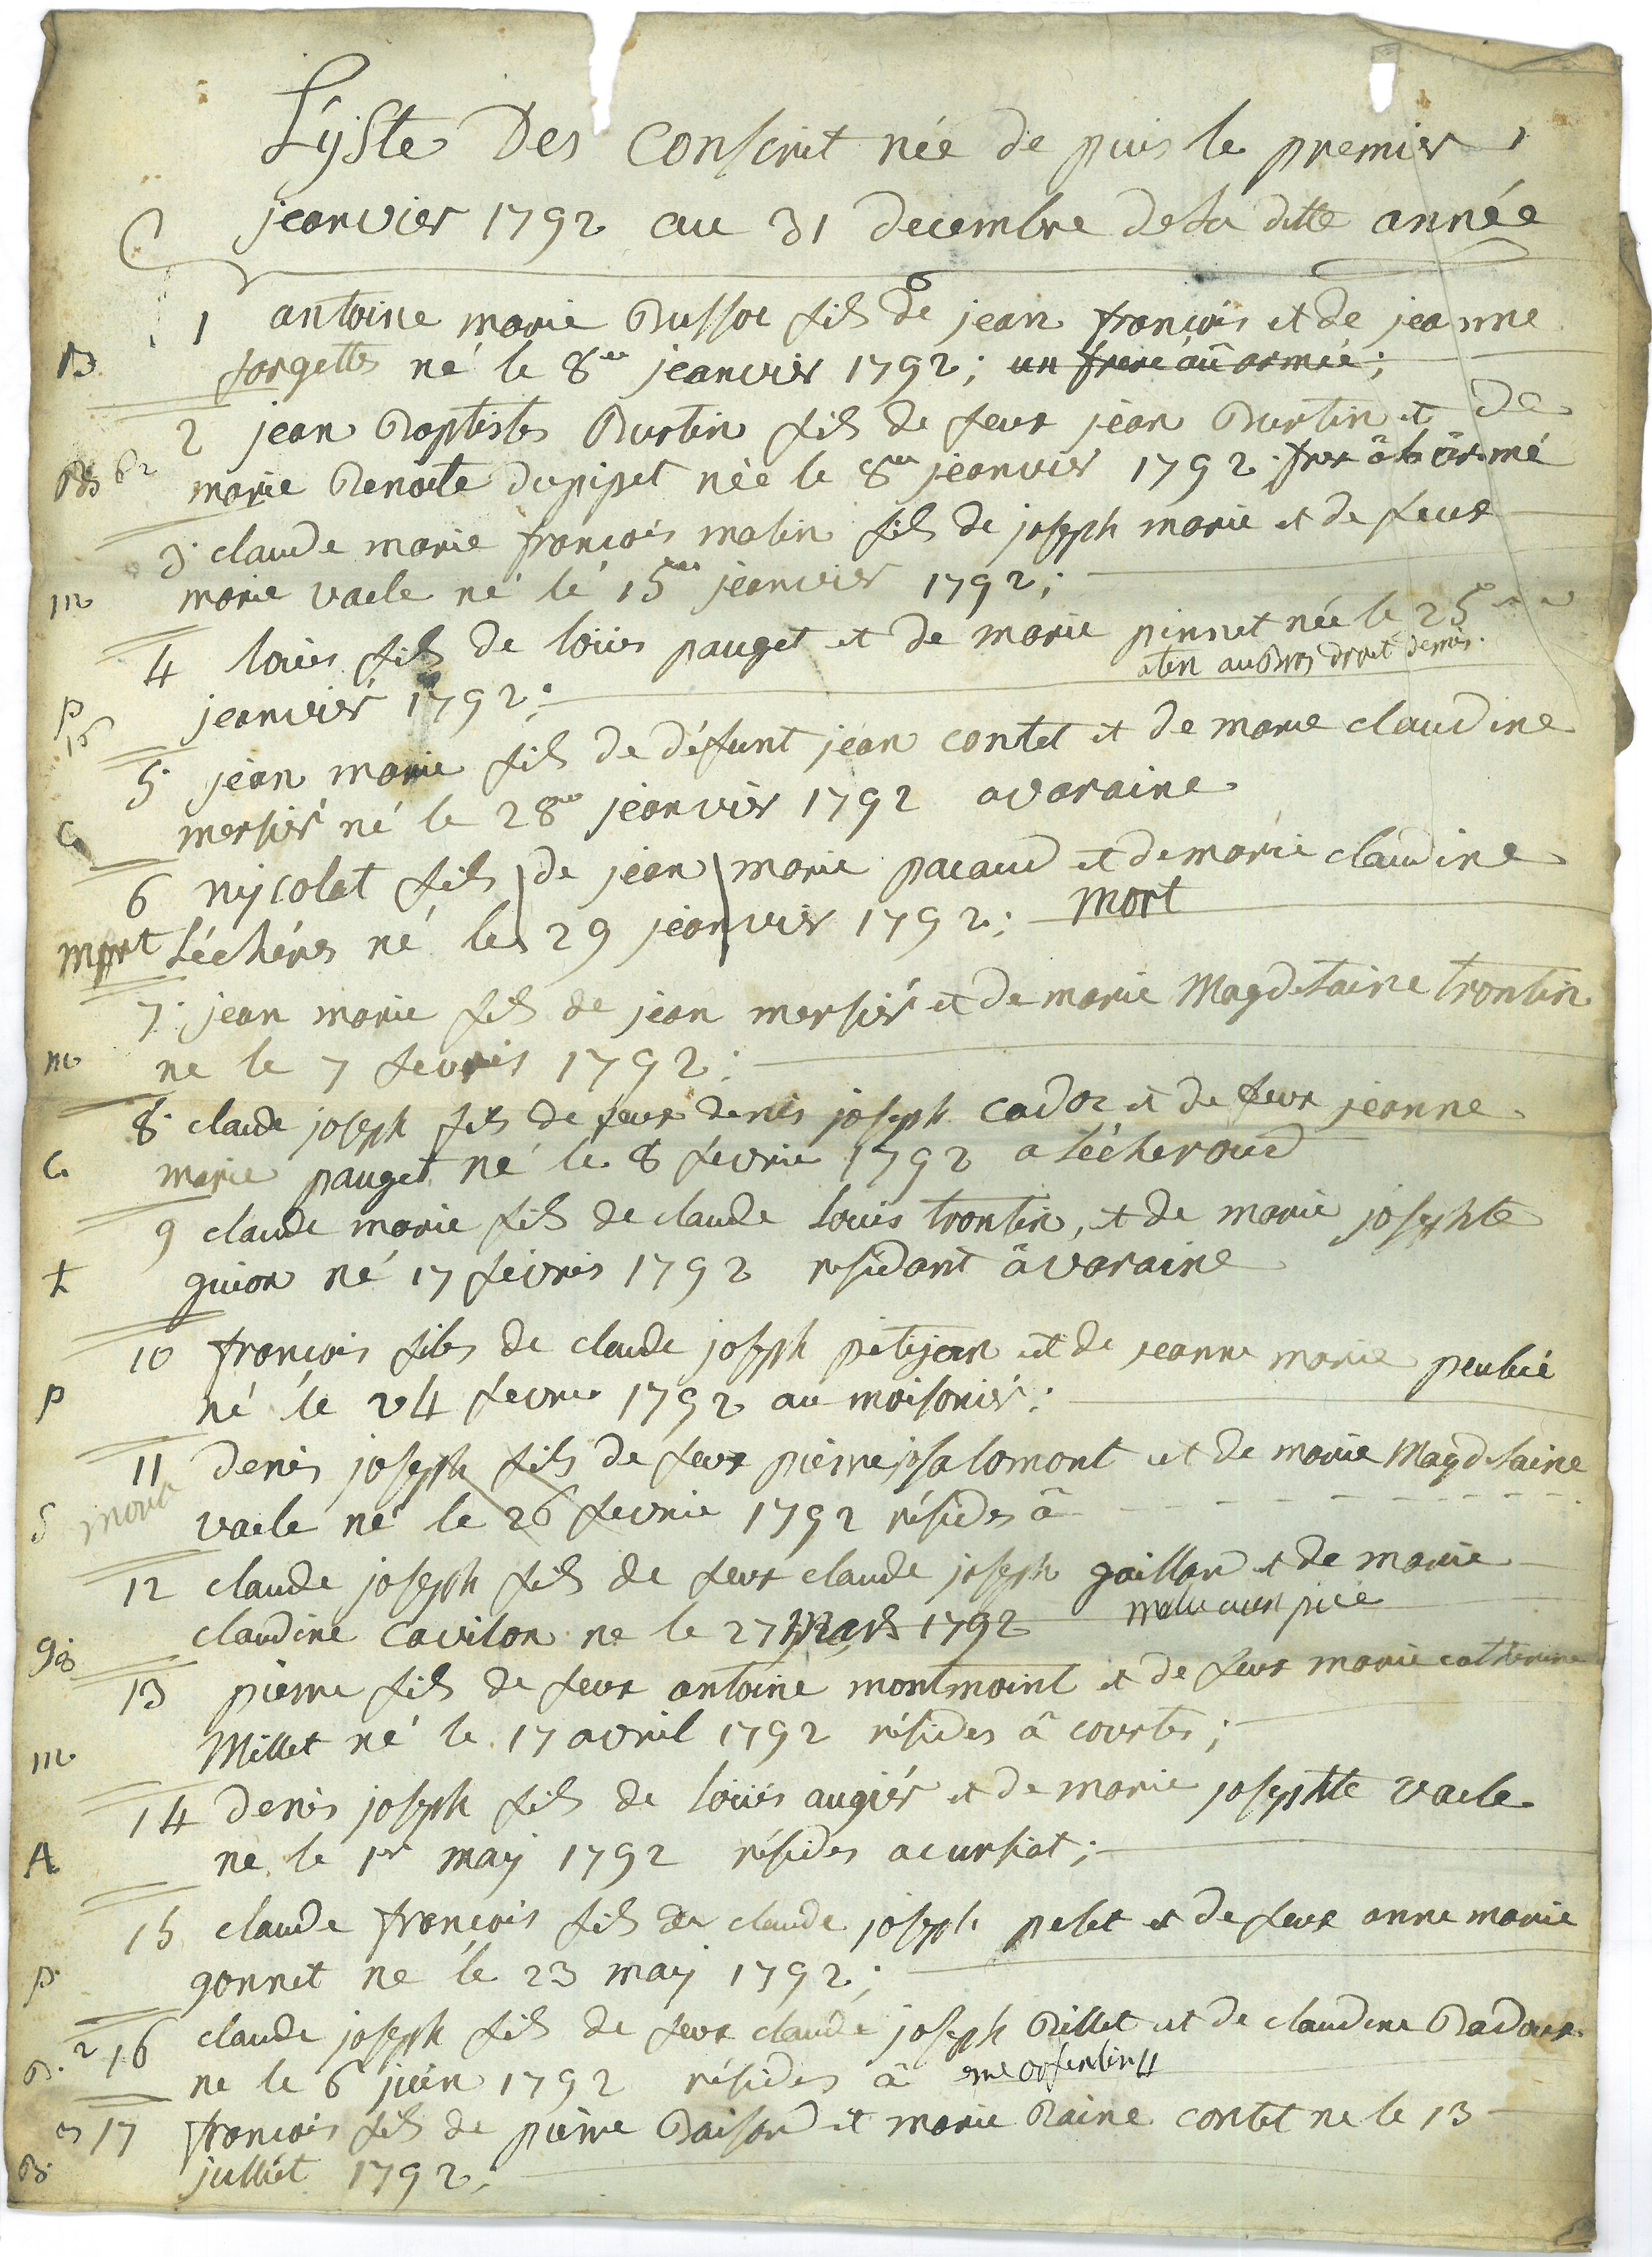 Lÿste Des Conscrit née de puis le premier
jeanvier 1792 au 31 decembre de la ditte année
1 antoine marie Bussoz fils de jean françois et de jeanne
B forgettes né le 8me jeanvier 1792; un frere au armée;
2 jean Baptistes Burtin fils de feux jean Burtin et de
marie Benoite dupiset née le 8me jeanvier 1792 frer â la armé
3 claude marie françois matin fils de joseph marie et de feux
m marie vacle né le 15me jeanvier 1792;
4 loüis fils de loüis pauget et de marie pinnet née le 25
atin au Bras droit demis.
p jeanvier 1792;
15
5 jean marie fils de défunt jean contet et de marie claudine
C mersier né le 28me jeanvier 1792 a varaine
6 nÿcolat fils de jean marie pacaud et de marie claudine
mort Léchéres né le 29 jeanvier 1792; mort
7 jean marie fils de jean mersier et de marie Magdelaine trontin
m ne le 7 fevrier 1792;
8 claude joseph fils de feux denis joseph cadoz et de feux jeanne
C marie pauget né le 8 févrie 1792 a lécheroud
9 claude marie fils de claude louis trontin, et de marie josephte
t guion né 17 févries 1792 residant â varaine
10 françois fils de claude joseph pitijean et de jeanne marie peubié
p né le 24 fevrie 1792 au moisonier;
11 denis joseph fils de feux pierre salomont et de marie Magdelaine
S mort vacle né le 26 fevrie 1792 résides â
12 claude joseph fils de feux claude joseph gaillard et de marie
ga claudine Cavilon ne le 27 Mars 1792
13 pierre fils de feux antoine montmoint et de feux marie catterine
m Millet né le 17 avril 1792 résides â courtes;
14 denis joseph fils de loüis augier et de marie josephte vacle
A ne le 1er maÿ 1792 résides a cursiat;
15 claude françois fils de claude joseph pelet et de feux anne marie
p gonnet ne le 23 maÿ 1792;
2 16 claude joseph fils de feux claude joseph Billet et de claudine Badoux
B. ne le 6 juin 1792 résides â
3 17 françois fils de pierre Baisard et marie Raine contet ne le 13
B. julliet 1792;